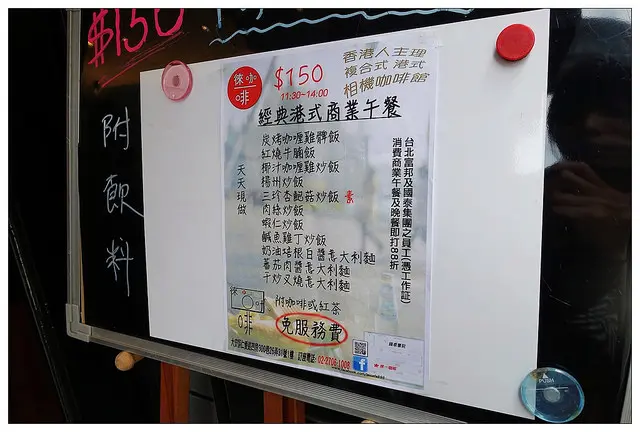 $150
附飲料
徠咖啡
$150
11:30~14:00
香港人主理
複合式 港式
相機咖啡館
經典港式商業午餐
天天現做
炭烤咖喱雞髀飯
紅燒牛腩飯
椰汁咖喱雞炒飯
揚州炒飯
三珍杏鮑菇炒飯 素
肉絲炒飯
蝦仁炒飯
鹹魚雞丁炒飯
奶油培根白醬意大利麵
蕃茄肉醬意大利麵
干炒叉燒意大利麵
附咖啡或紅茶
免服務費
台北富邦及國泰集團之員工(憑工作証)
消費商業午餐及晚餐即打88折
徠
啡
訂座電話: 02-2708-1008